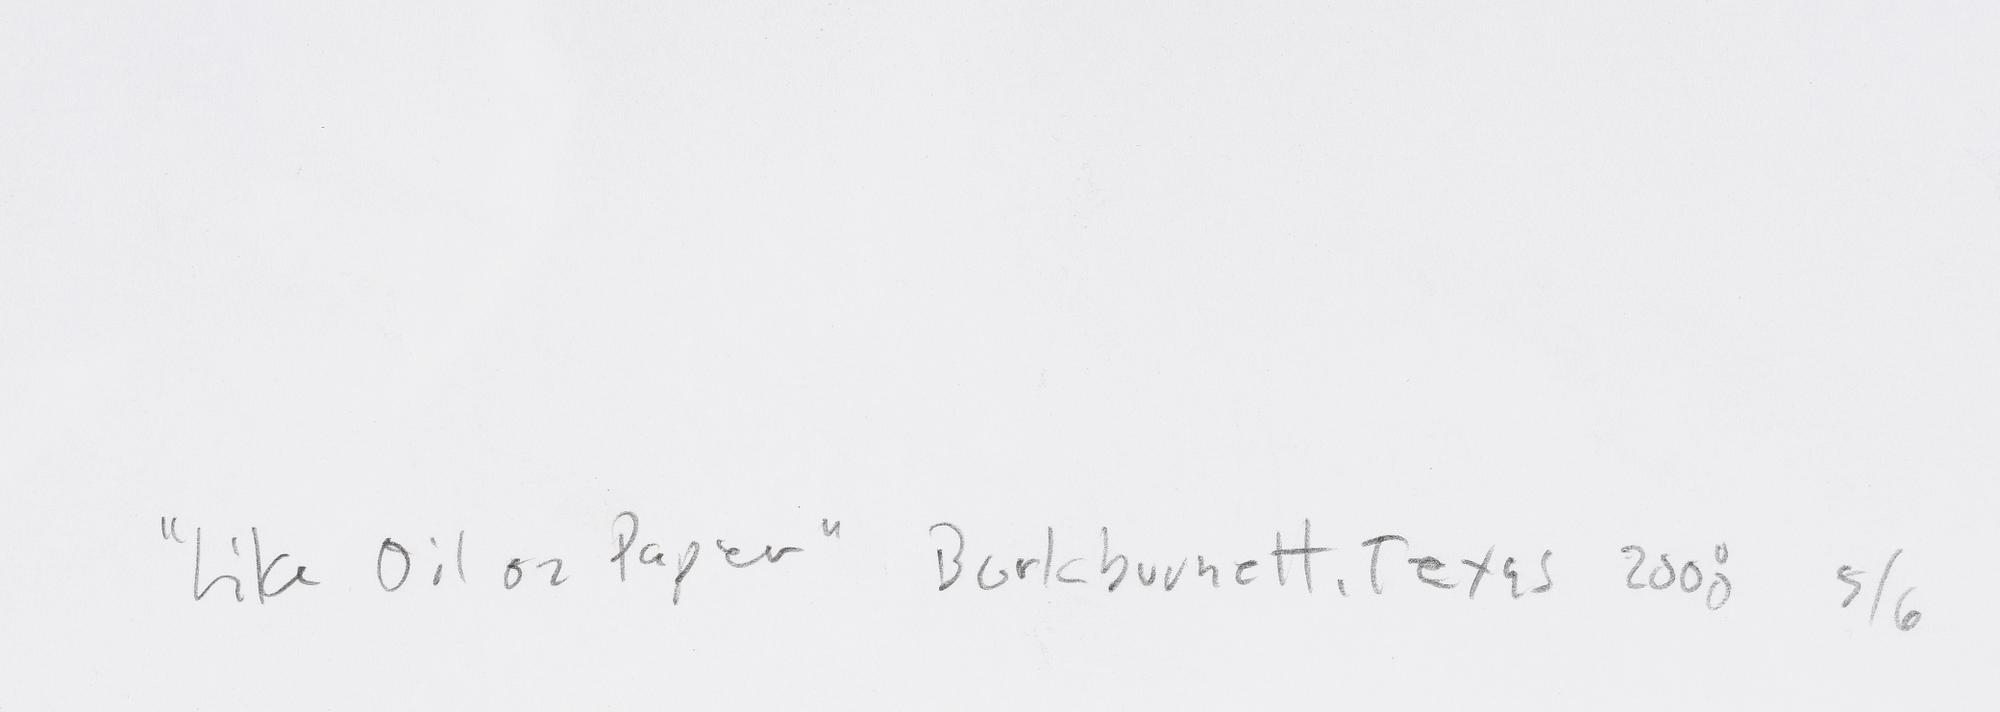 "Like Oil on Paper" Burkburnett, Texas 2008 5/6